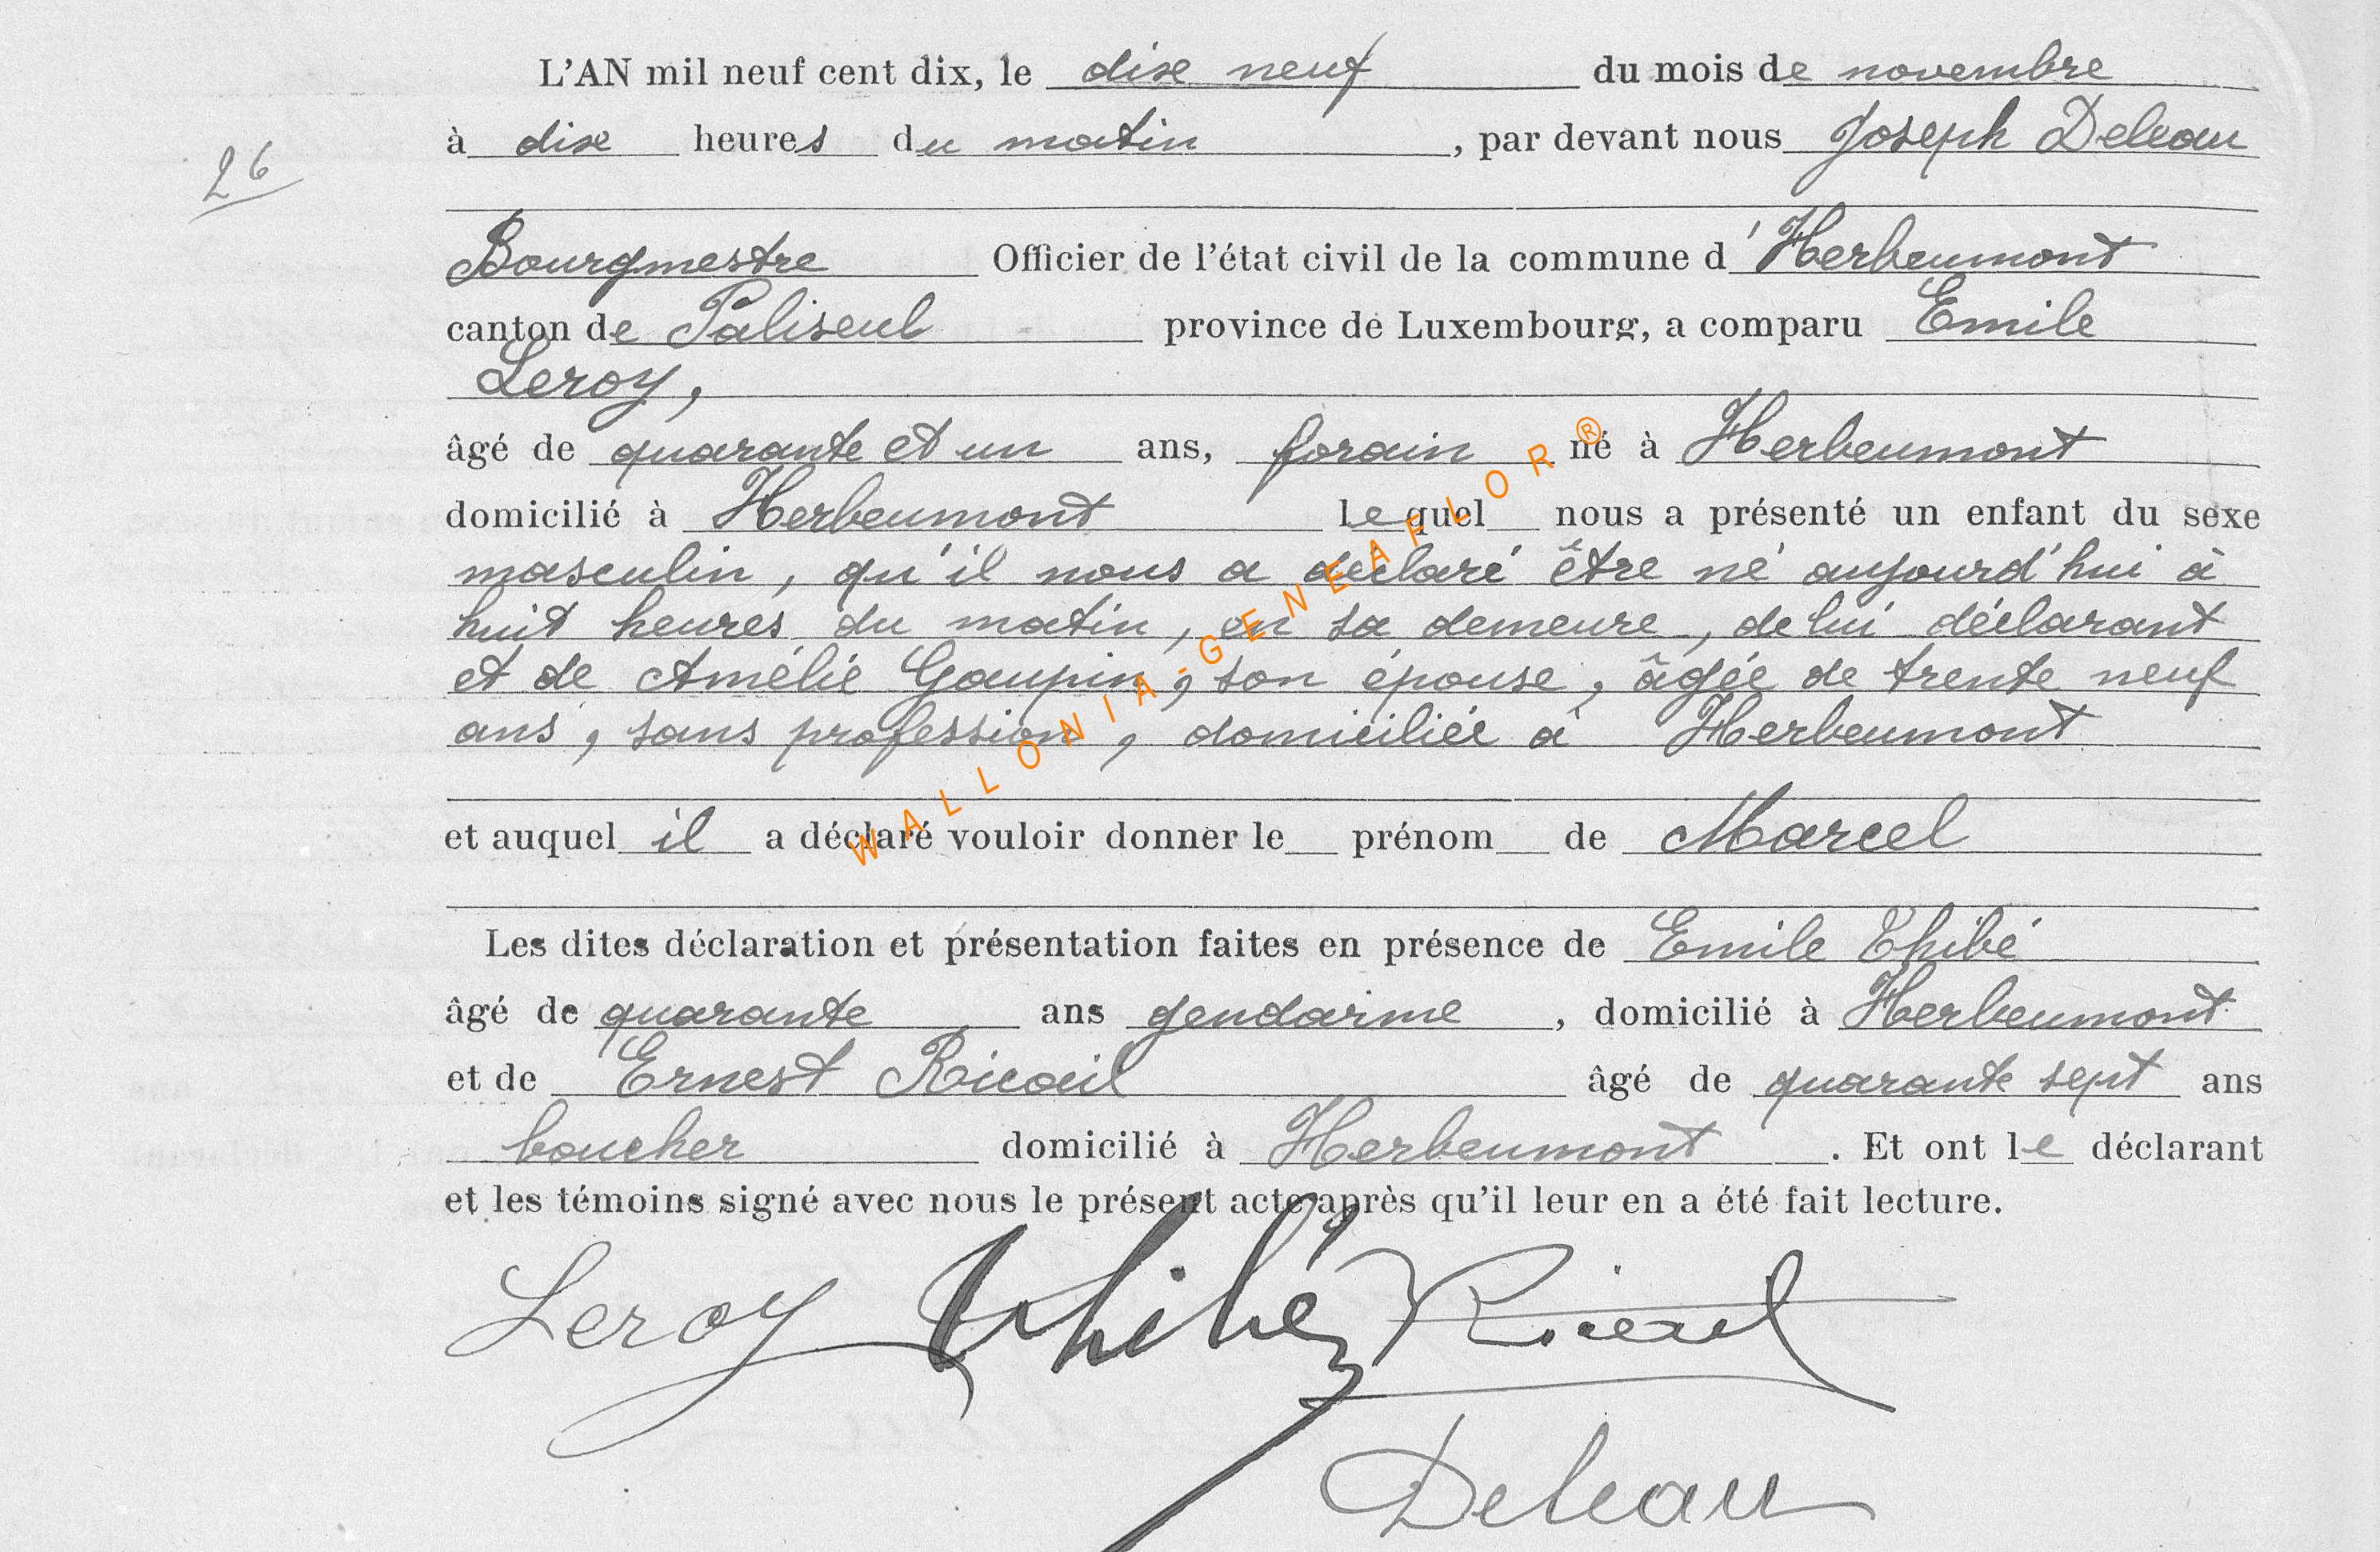 L'AN mil neuf cent dix, le dix neuf du mois de novembre
26
à dix heures du matin, par devant nous Joseph Deleau
Bourgmestre Officier de l'état civil de la commune d'Herbeumont
canton de Paliseul province de Luxembourg, a comparu Emile
Leroy,
âgé de quarante et un ans, forain né à Herbeumont
domicilié à Herbeumont lequel nous a présenté un enfant du sexe
masculin, qu'il nous a déclaré être né aujourd'hui à
huit heures du matin, en sa demeure, de lui déclarant
et de Amélie Goupin, son épouse, âgée de trente neuf
ans, sans profession, domiciliée à Herbeumont
et auquel il a déclaré vouloir donner le prénom de Marcel
Les dites déclaration et présentation faites en présence de Emile Thibé
âgé de quarante ans gendarme, domicilié à Herbeumont
et de Ernest Ricaeil âgé de quarante sept ans
boucher domicilié à Herbeumont. Et ont le déclarant
et les témoins signé avec nous le présent acte après qu'il leur en a été fait lecture.
Leroy Thibé
Deleau
WALLONIA-GENEAFLOR®